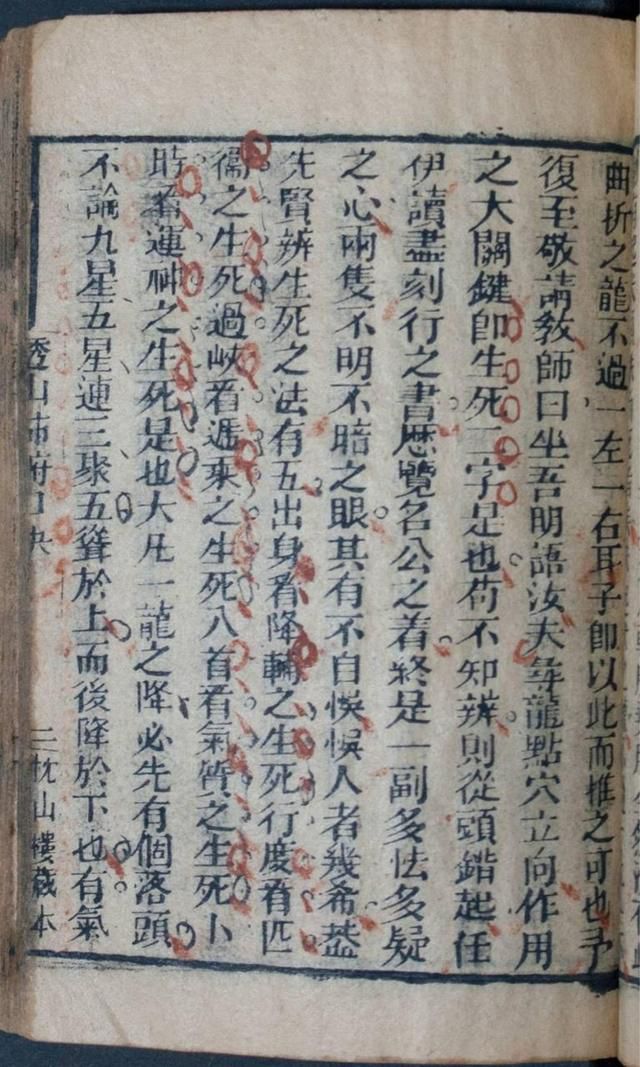 曲折之龍不過一左一右耳子卽以此而推之可也予
復至敬請教師曰坐吾明語汝夫尋龍點穴立向作用
之大關鍵卽生死二字是也苟不知辨則從頭錯起任
伊讀盡刻行之書歷覽名公之着終是一副多怯多疑
之心兩隻不明不暗之眼其有不自悞悞人者幾希葢
先賢辨生死之法有五出身看降輔之生死行度看匹
之生死過峽看遞乘之生死八首看氣質之生死卜
時運之生死是也大凡一龍之降必先有個落頭
不論九星五星連三聚五聳於上而後降於下也有氣
透山口
三枕山樓藏本